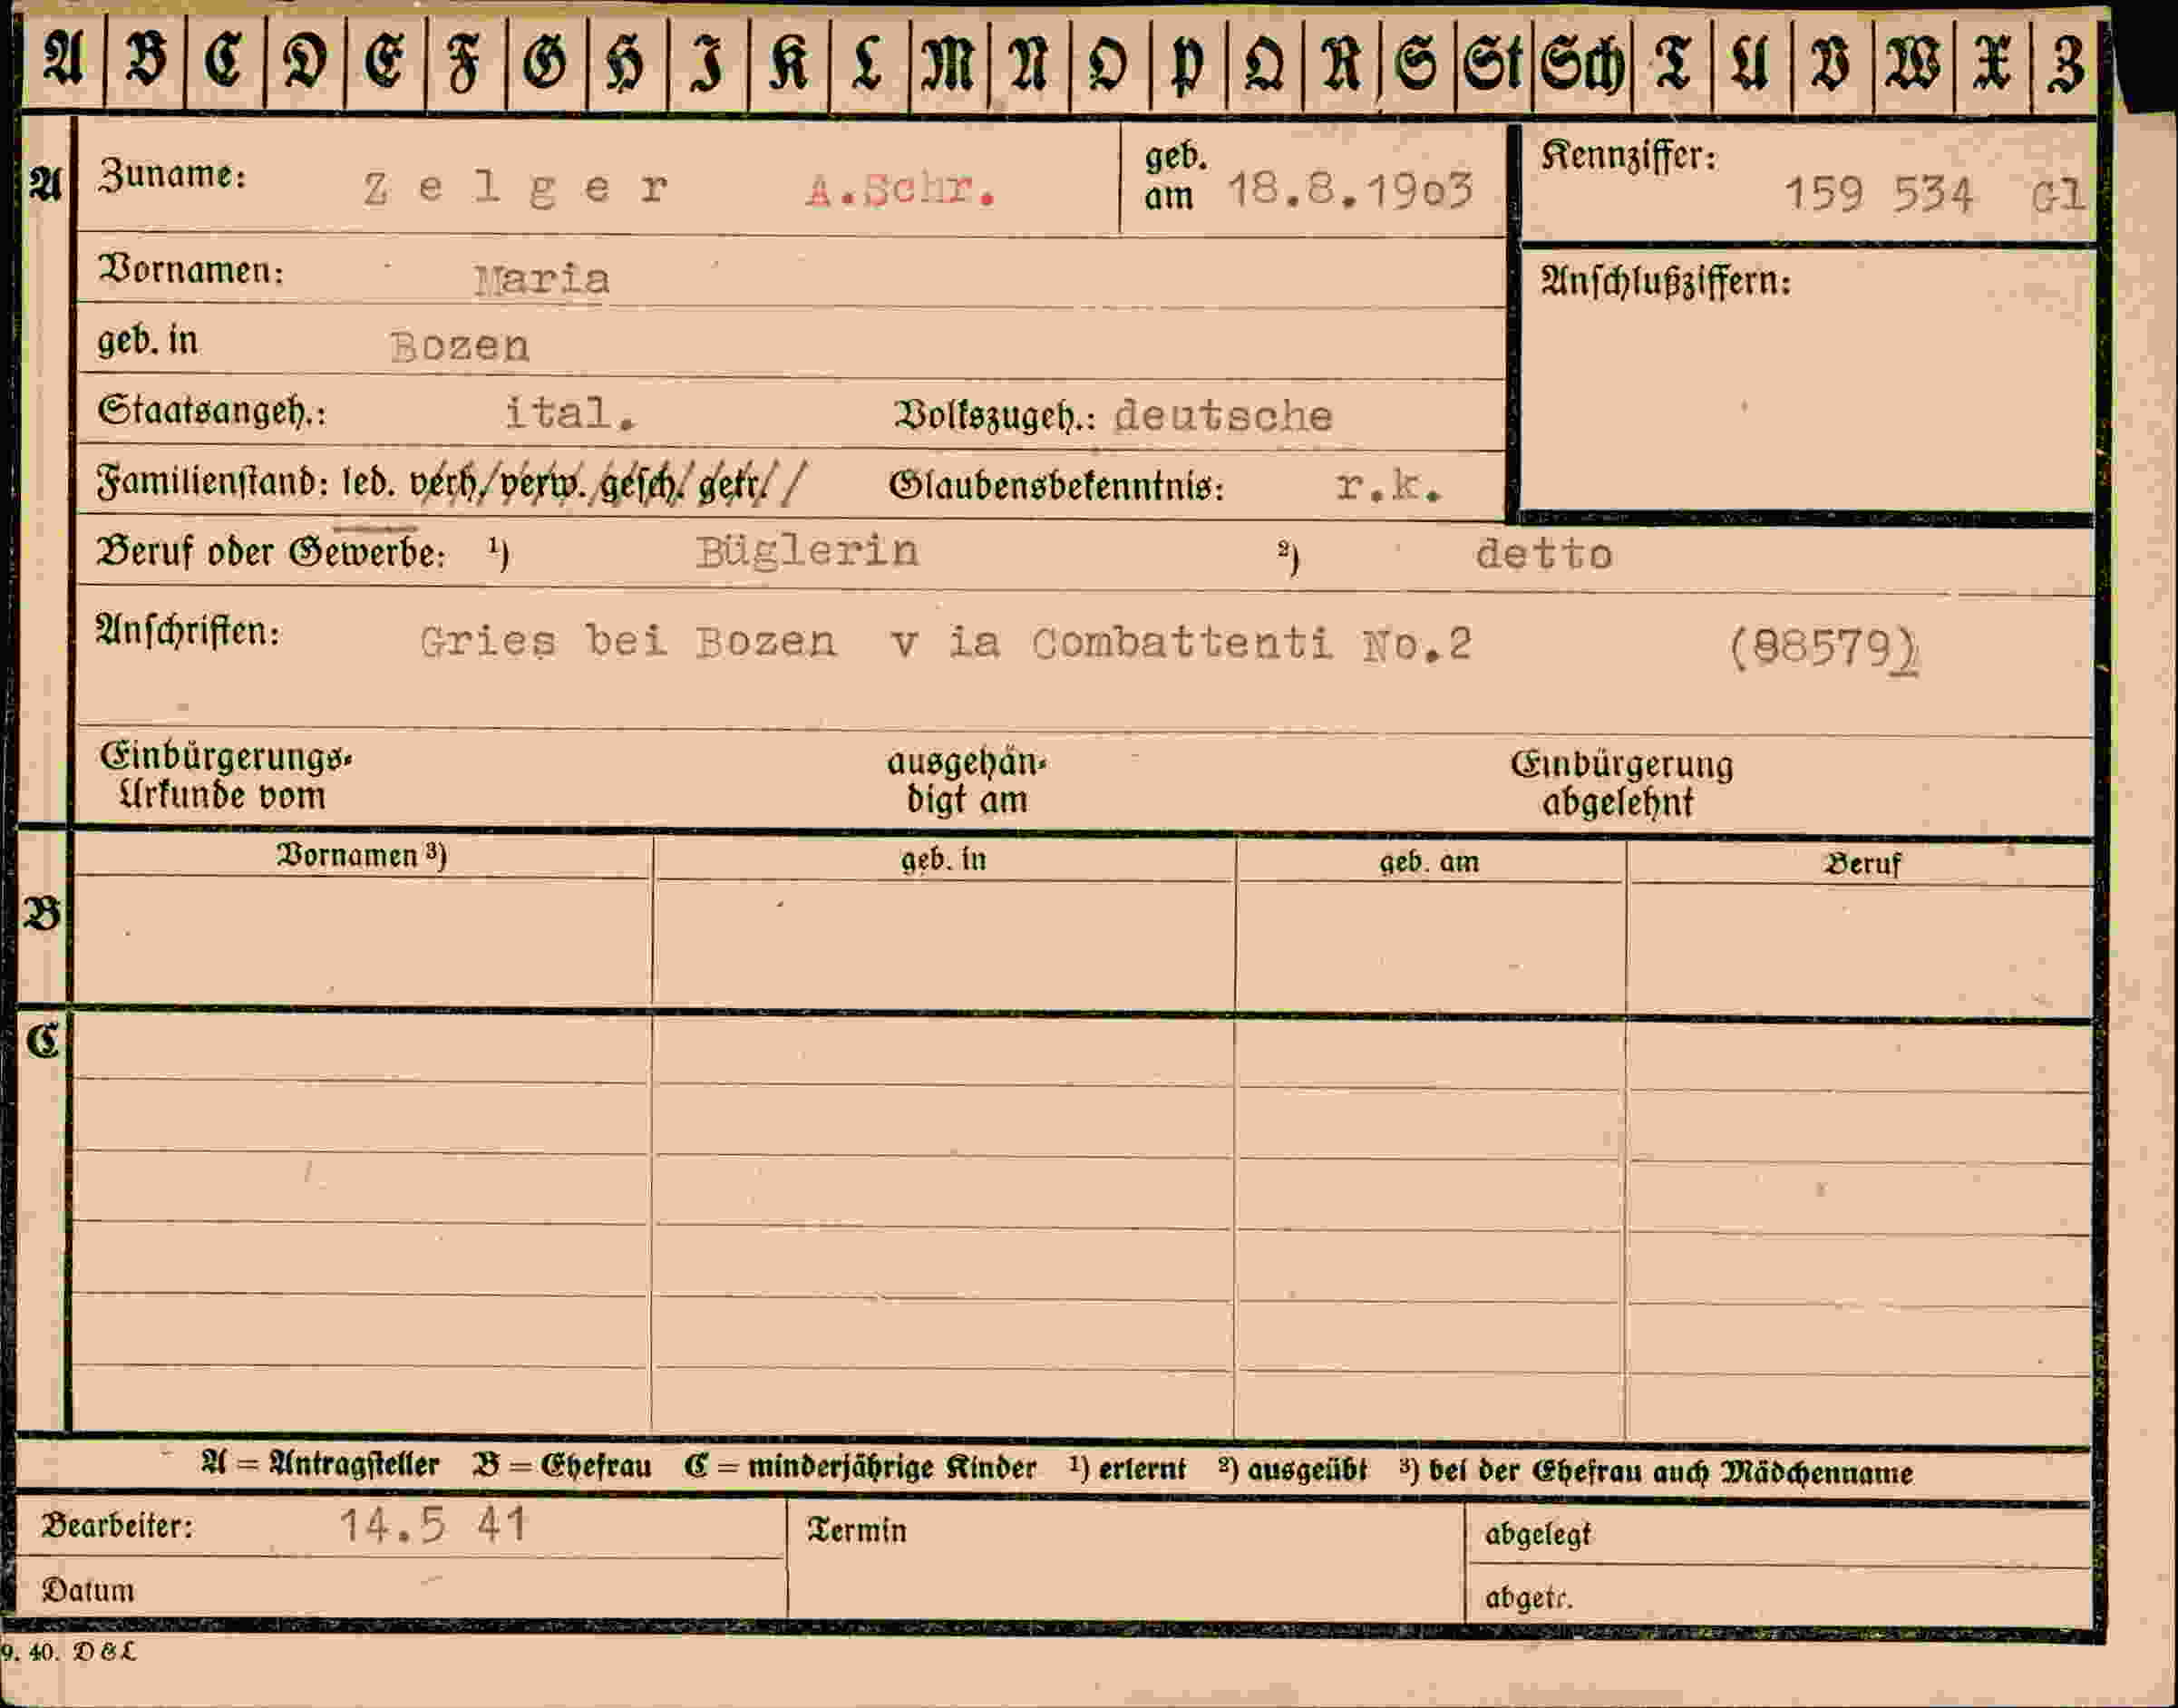 A B C D E F G H I K L M N O P Q R S St Sch T U V W X Z
A Zuname: Zelger A.Schr. geb. am 18.8.1903 Kennziffer: 159 534 Gl
Vornamen: Maria Anschlußziffern:
geb. in Bozen
Staatsangeh.: ital. Volkszugeh.: deutsche
Familienstand: led. verh. verw. gesch. getr. Glaubensbekenntnis: r.k.
Beruf oder Gewerbe: ¹) Büglerin ²) detto
Anschriften: Gries bei Bozen v ia Combattenti No.2 (88579)
Einbürgerungs- ausgehän- Einbürgerung
Urkunde vom digt am abgelehnt
Vornamen ³) geb. in geb. am Beruf
B
C
A = Antragsteller B = Ehefrau C = minderjährige Kinder ¹) erlernt ²) ausgeübt ³) bei der Ehefrau auch Mädchenname
Bearbeiter: 14.5 41 Termin abgelegt
Datum abgetr.
9. 40. D & L